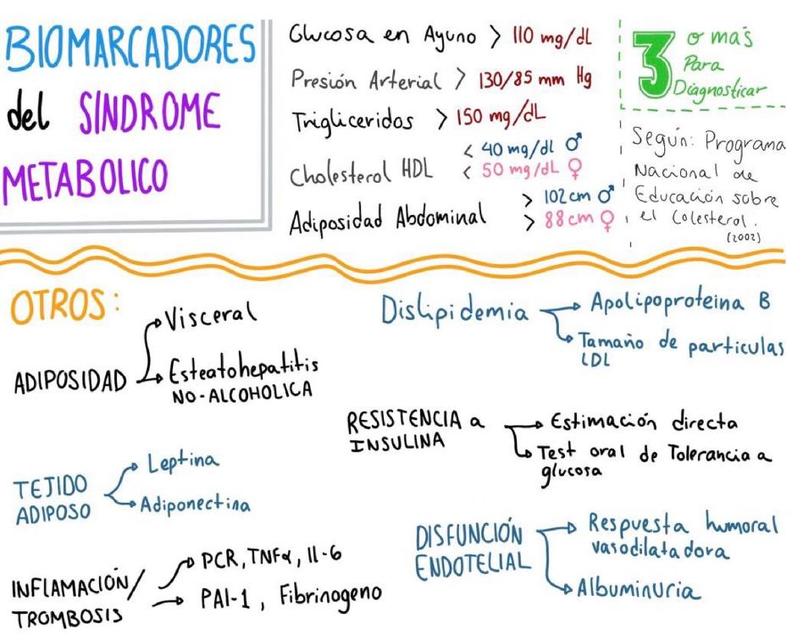 BIOMARCADORES
del SÍNDROME
METABOLICO
Glucosa en Ayuno > 110 mg/dl
Presión Arterial > 130/85 mm Hg
Trigliceridos > 150 mg/dL
Cholesterol HDL
< 40 mg/dl ♂
< 50 mg/dL ♀
Adiposidad Abdominal
> 102cm ♂
> 88cm ♀
3 o más
Para
Diagnosticar
Según: Programa
Nacional de
Educación sobre
el Colesterol.
(2002)
OTROS:
ADIPOSIDAD
Visceral
Esteatohepatitis
NO-ALCOHOLICA
Dislipidemia
Apolipoproteina B
Tamaño de particulas
LDL
RESISTENCIA a
INSULINA
Estimación directa
Test oral de Tolerancia a
glucosa
TEJIDO
ADIPOSO
Leptina
Adiponectina
DISFUNCIÓN
ENDOTELIAL
Respuesta humoral
vasodilatadora
Albuminuria
INFLAMACIÓN/
TROMBOSIS
PCR, TNFα, Il-6
PAI-1, Fibrinogeno